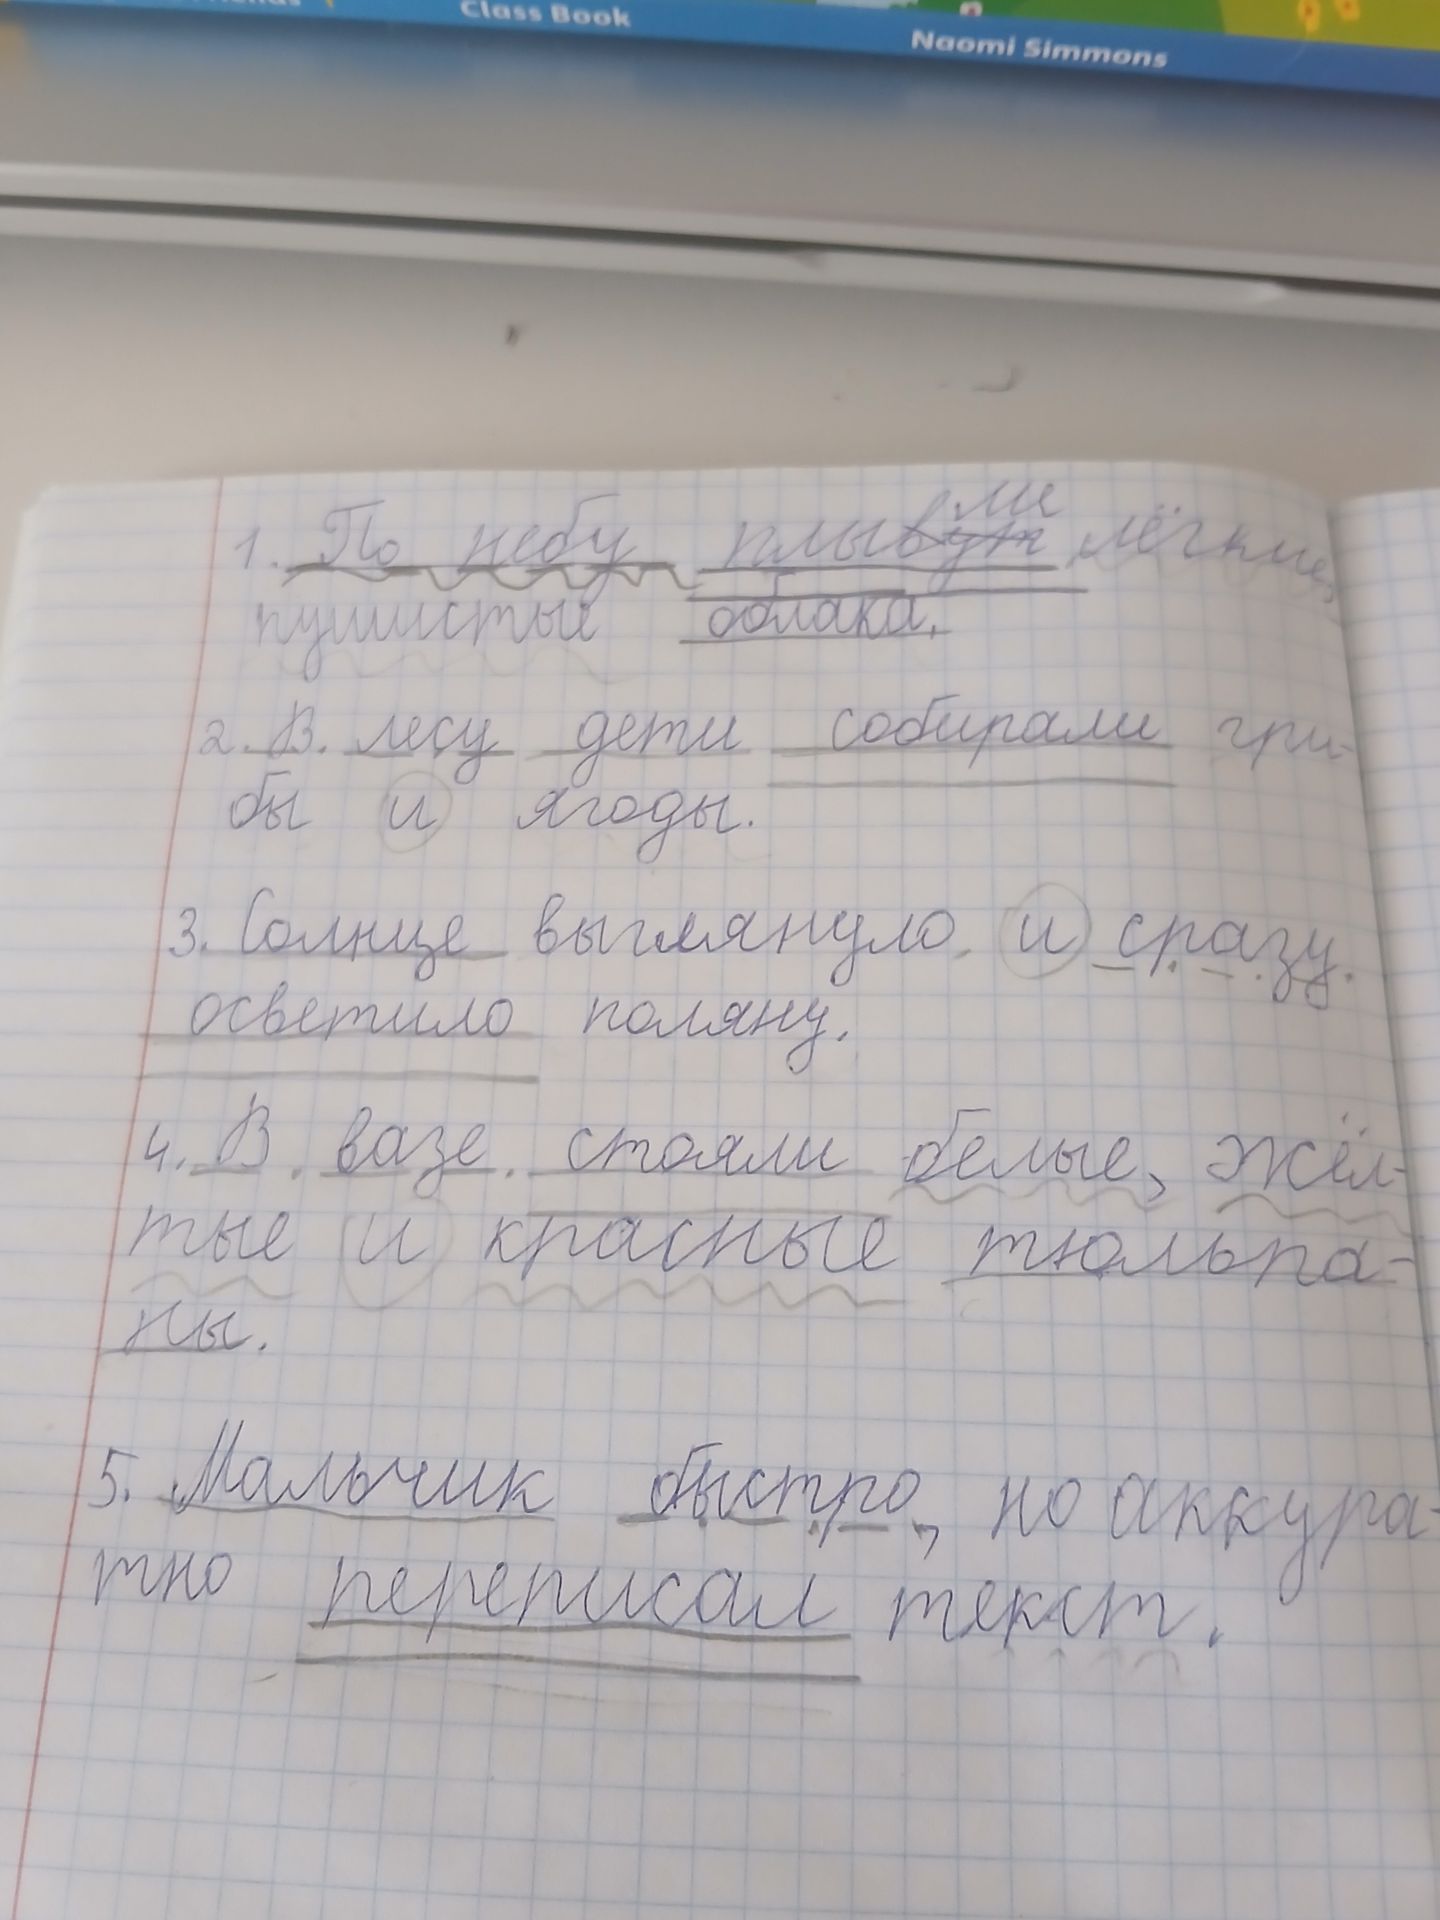 Class Book
Naomi Simmons
1. По небу плывли лёгкие,
пушистые облака.
2. В лесу дети собирали гри-
бы и ягоды.
3. Солнце выглянуло и сразу
осветило поляну.
4. В вазе стояли белые, жёл-
тые и красные тюльпа-
ны.
5. Мальчик быстро, но аккура-
тно переписал текст.